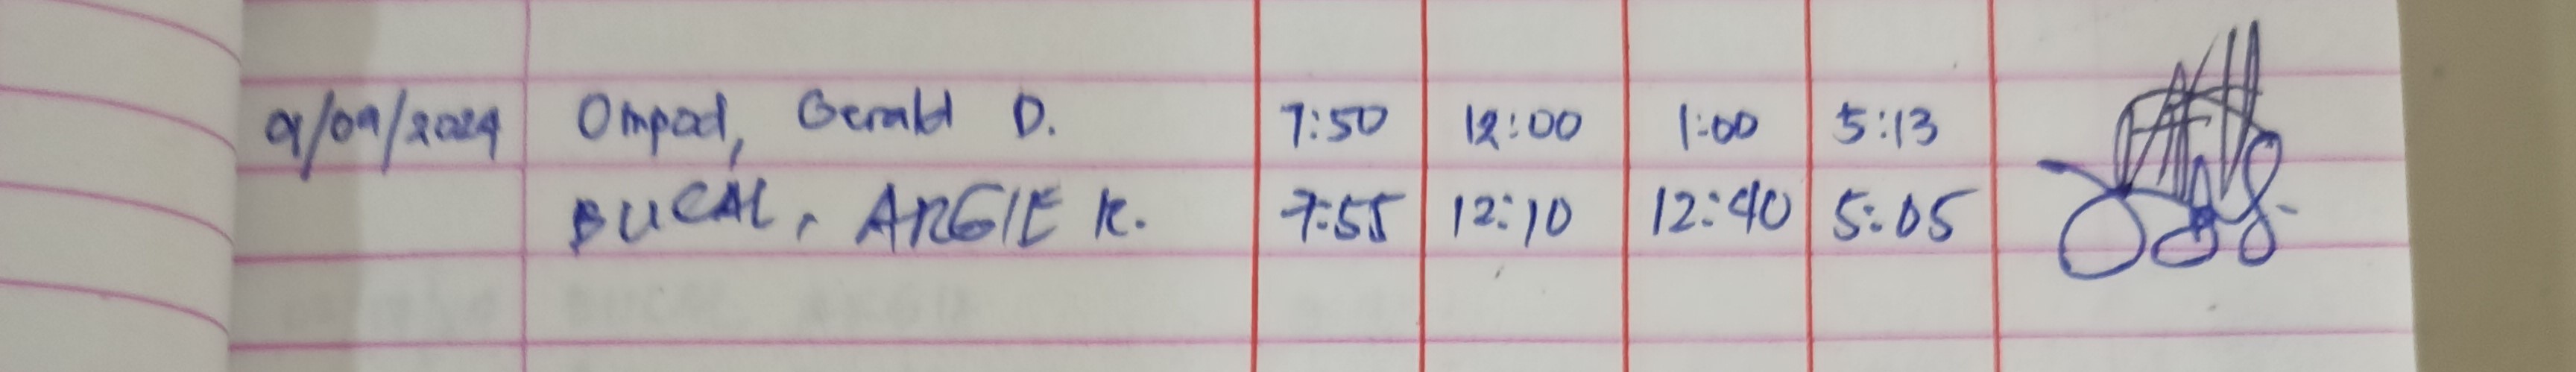 9/09/2024 Ompad, Gerald D. 7:50 12:00 1:00 5:13
BUCAL, ARGIE R. 7:55 12:10 12:40 5:05